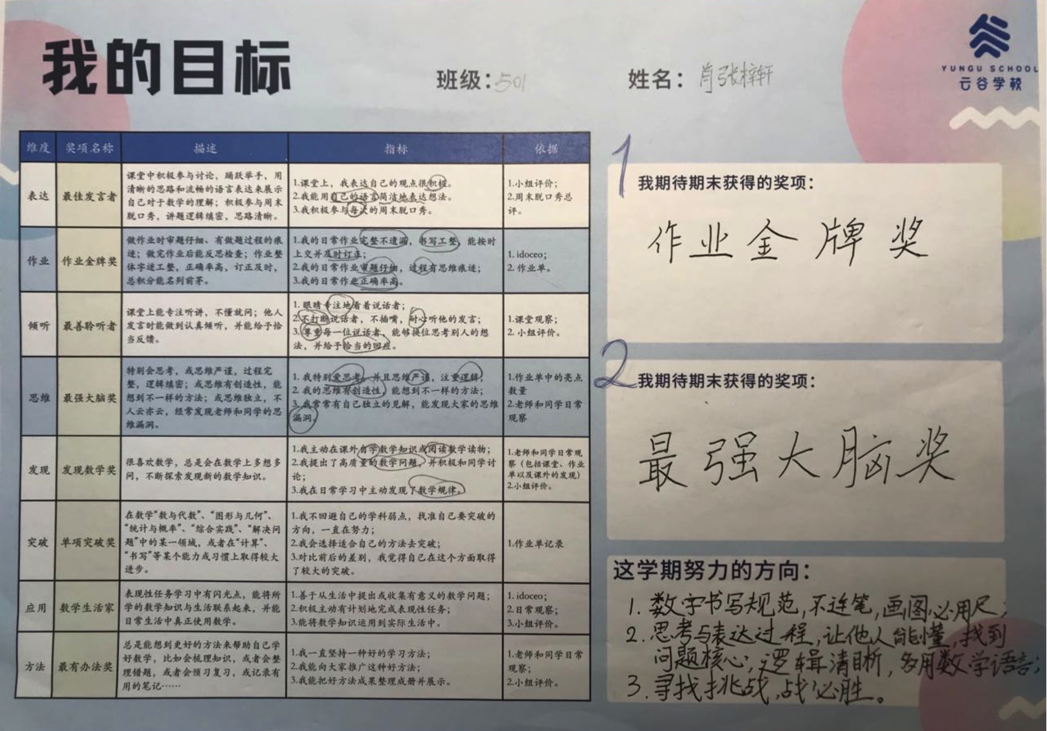 我的目标
班级：501
姓名：肖张梓轩
YUNGU SCHOOL
云谷学校
维度 奖项名称 描述 指标 依据
表达 最佳发言者
课堂中积极参与讨论，踊跃举手，用
清晰的思路和流畅的语言表达来展示
自己对于数学的理解；积极参与周末
脱口秀，讲题逻辑缜密，思路清晰。
1.课堂上，我表达自己的观点很积极。
2.我能用自己的语言简洁地表达想法。
3.我积极参与每次的周末脱口秀。
1.小组评价；
2.周末脱口秀总
评。
作业 作业金牌奖
做作业时审题仔细、有做题过程的痕
迹；做完作业后能反思检查；作业整
体字迹工整，正确率高，订正及时，
总积分能名列前茅。
1.我的日常作业完整不遗漏，书写工整，能按时
上交并及时订正；
2.我的日常作业审题仔细，过程有思维痕迹；
3.我的日常作业正确率高。
1. idoceo；
2. 作业单。
倾听 最善聆听者
课堂上能专注听讲，不懂就问；他人
发言时能做到认真倾听，并能给予恰
当反馈。
1. 眼睛专注地看着说话者；
2.不打断说话者，不插嘴，耐心听他的发言；
3.尊重每一位说话者，能够换位思考别人的想
法，并给予恰当的回应。
1.课堂观察；
2. 小组评价。
思维 最强大脑奖
特别会思考，或思维严谨，过程完
整，逻辑缜密；或思维有创造性，能
想到不一样的方法；或思维独立，不
人云亦云，经常发现老师和同学的思
维漏洞。
1. 我特别爱思考，并且思维严谨，注重逻辑；
2. 我的思维有创造性，能想到不一样的方法；
3. 我常常有自己独立的见解，能发现大家的思维
漏洞。
1.作业单中的亮点
数量
2.老师和同学日常
观察
发现 发现数学奖
很喜欢数学，总是会在数学上多想多
问，不断探索发现新的数学知识。
1.我主动在课外自学数学知识或阅读数学读物；
2.我提出了高质量的数学问题，并积极和同学讨
论；
3.我在日常学习中主动发现了数学规律。
1.老师和同学日常观
察（包括课堂、作业
单以及课外的发现）
2.小组评价。
突破 单项突破奖
在数学“数与代数”、“图形与几何”、
“统计与概率”、“综合实践”、“解决问
题”中的某一领域，或者在“计算”、
“书写”等某个能力或习惯上取得较大
进步。
1.我不回避自己的学科弱点，找准自己要突破的
方向，一直在努力；
2.我会选择适合自己的方法去突破；
3.对比前后的差别，我觉得自己在这个方面取得
了较大的突破。
1.作业单记录
应用 数学生活家
表现性任务学习中有闪光点，能将所
学的数学知识与生活联系起来，并能
日常生活中真正使用数学。
1.善于从生活中提出或收集有意义的数学问题；
2.积极主动有计划地完成表现性任务；
3.能将数学知识运用到实际生活中。
1. idoceo；
2.日常观察；
3.小组评价。
方法 最有办法奖
总是能想到更好的方法来帮助自己学
好数学，比如会梳理知识，或者会整
理错题，或者会预习复习，或记录有
用的笔记……
1.我一直坚持一种好的学习方法；
2.我能向大家推广这种好方法；
3.我能把好方法成果整理成册并展示。
1.老师和同学日常
观察；
2.小组评价。
1
我期待期末获得的奖项：
作业金牌奖
2
我期待期末获得的奖项：
最强大脑奖
这学期努力的方向：
1. 数字书写规范，不连笔，画图必用尺；
2. 思考与表达过程，让他人能懂，找到
问题核心，逻辑清晰，多用数学语言；
3. 寻找挑战，战必胜。